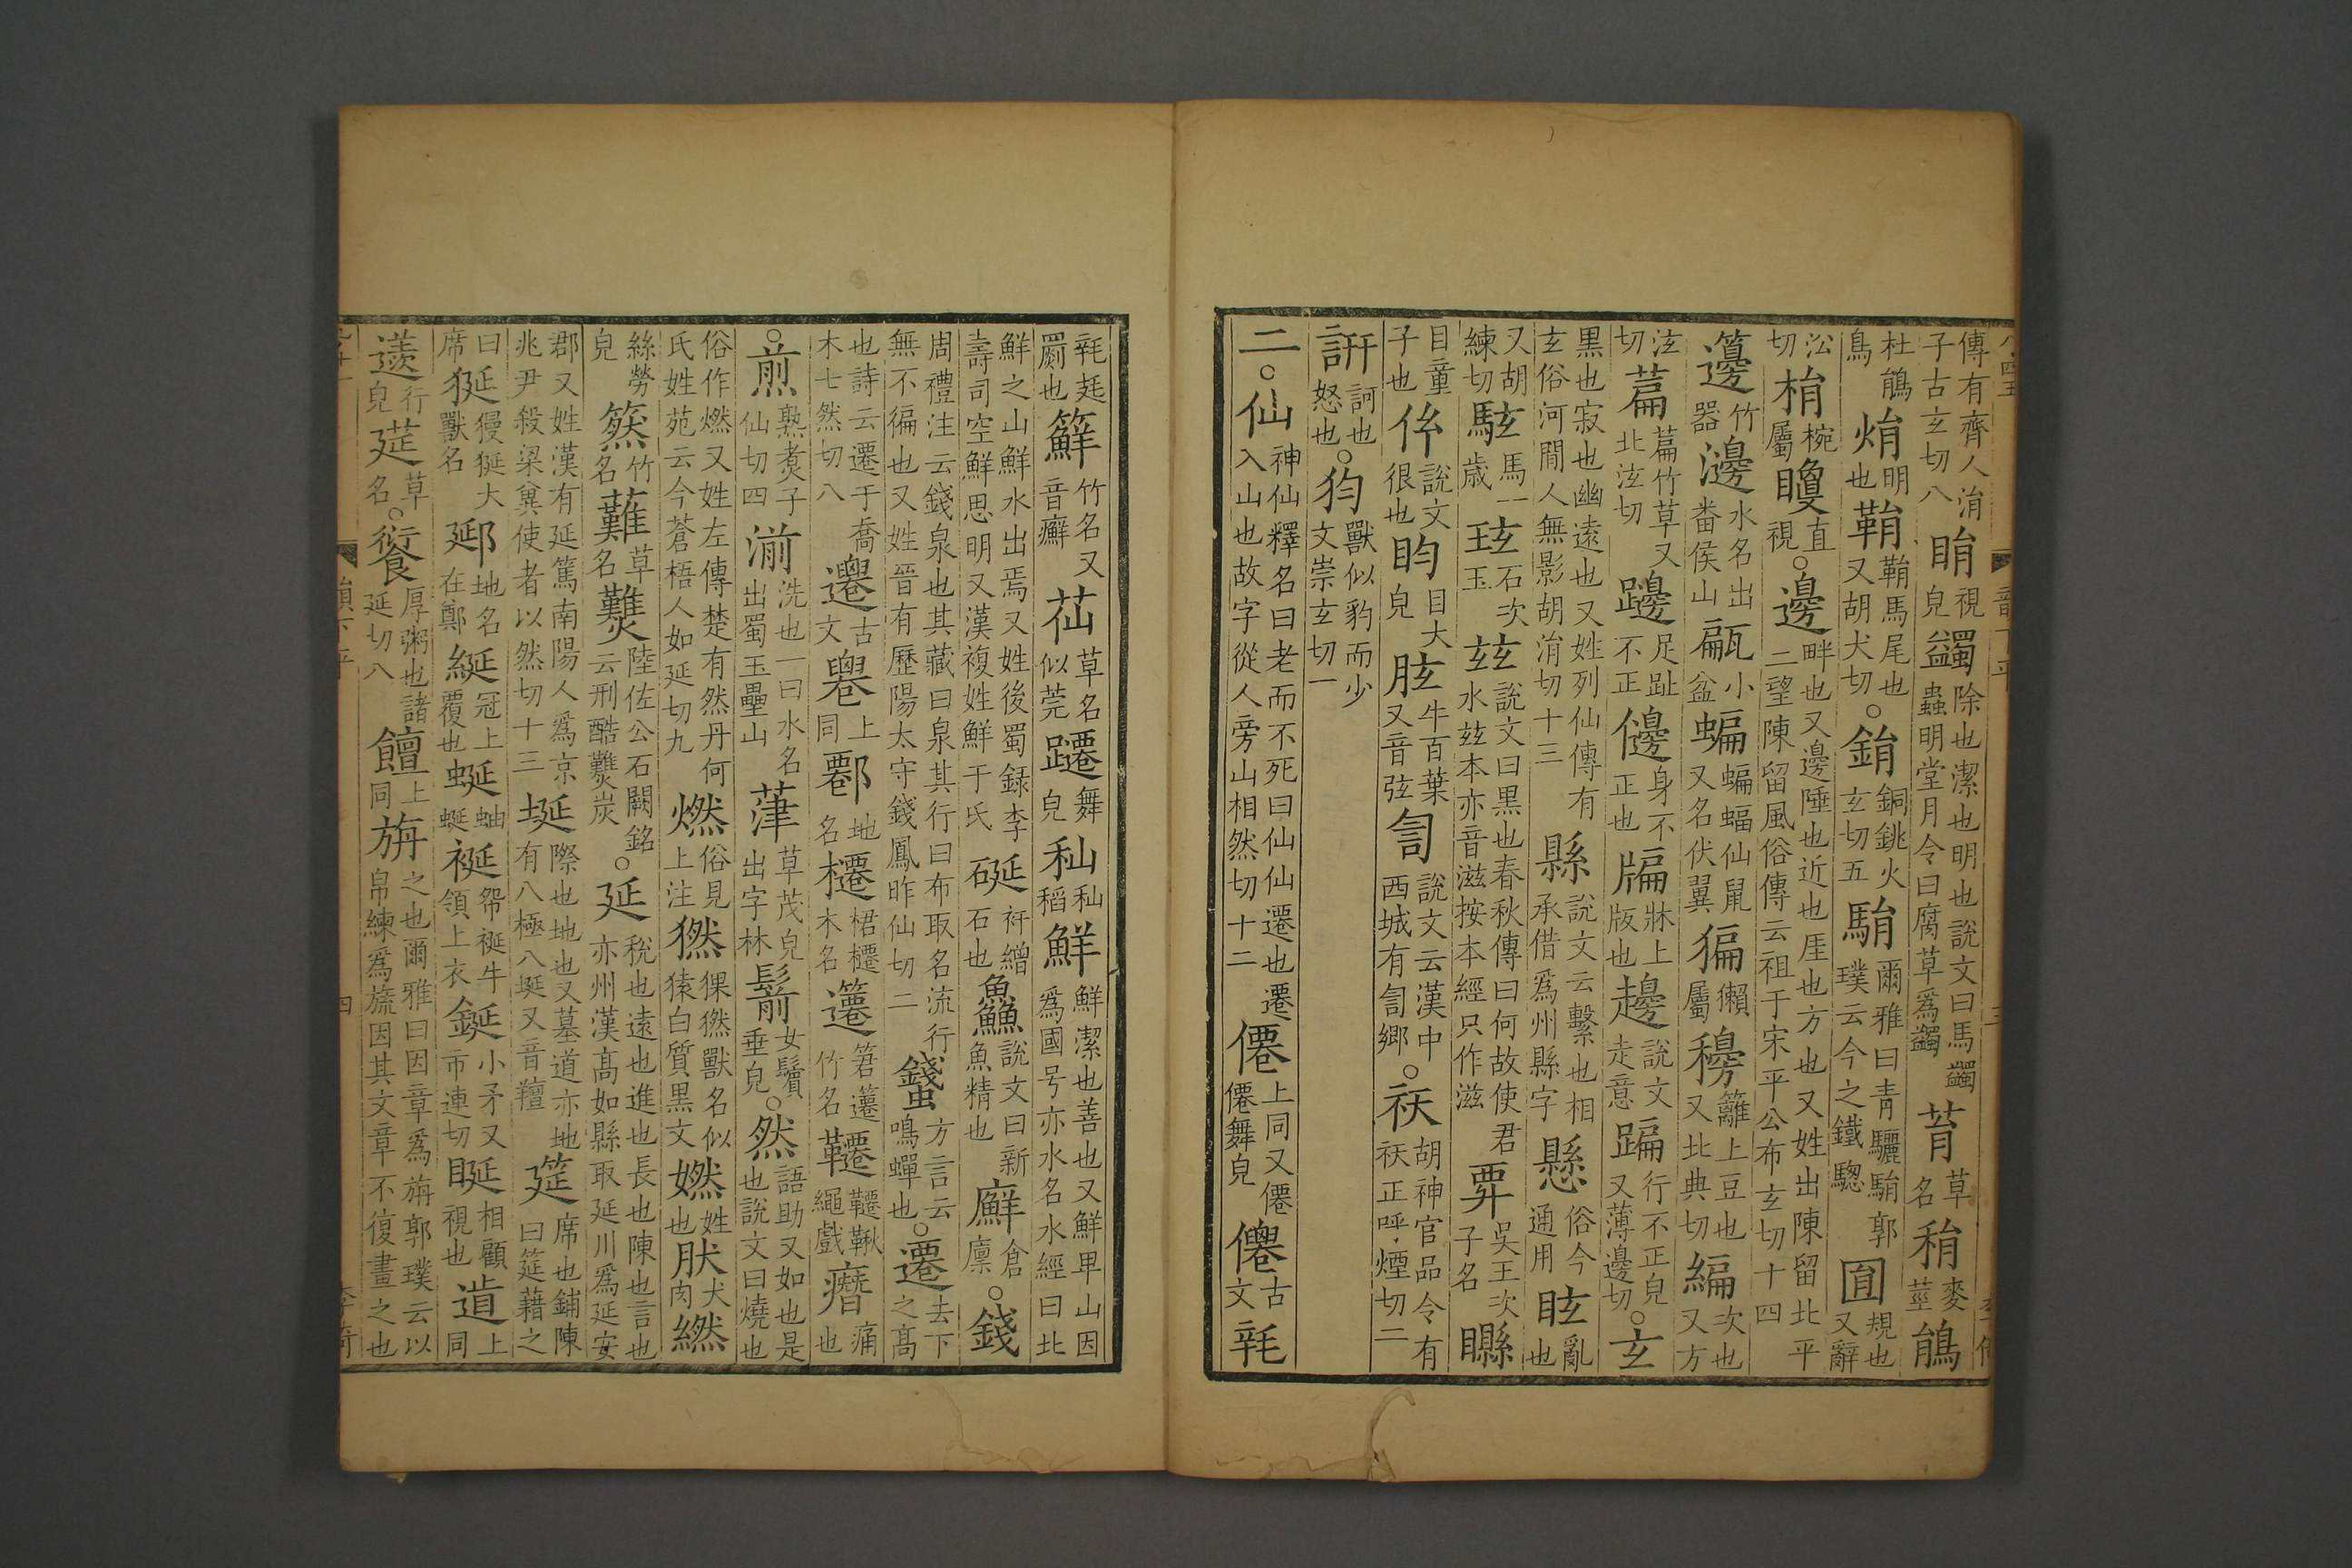 傳有齊人涓子古玄切八睊視皃蠲除也潔也明也說文曰馬蠲蟲明堂月令曰腐草爲蠲𦳣草名稍麥莖鵑
杜鵑鳥焆明也鞙鞙馬尾也又胡犬切○鋗銅銚火玄切五駽爾雅曰青驪駽郭璞云今之鐵驄𡇌規也又辭
泫切梋椀屬矎直視○邊畔也又邊陲也近也厓也方也又姓出陳留北平二望陳留風俗傳云祖于宋平公布玄切十四
籩竹器邊水名出番侯山甂小盆蝙蝙蝠仙鼠又名伏翼猵獺屬䅫籬上豆也又北典切編次也又方
泫切萹萹竹草又北泫切𨘢足趾不正㝸身不正也牑牀上版也𨖾說文走意蹁行不正皃又薄邊切○玄
黑也寂也幽遠也又姓列仙傳有玄俗河閒人無影胡涓切十三縣說文云繫也相承借爲州縣字懸俗今通用眩亂也
又胡練切駭馬一歲玹石次玉玆說文曰黑也春秋傳曰何故使君水玆本亦音滋按本經只作滋䍒吳王次子名矎
目童子也伭說文很也盷目大皃胘牛百葉又音弦訇說文云漢中西城有訇鄉○祆胡神官品令有祆正呼煙切二
訮訶也怒也○㹂獸似豹而少文崇玄切一
二○仙神仙釋名曰老而不死曰仙仙遷也遷入山也故字從人旁山相然切十二僊上同又僊僊舞皃僲古文𣬛
𣬛㲔罽也䉳竹名又音癬苮草名似莞躚舞皃秈秈稻鮮鮮潔也善也又鮮卑山因爲國号亦水名水經曰北
鮮之山鮮水出焉又姓後蜀録李壽司空鮮思明又漢複姓鮮于氏硟衦繒石也鱻說文曰新魚精也廯倉廩○錢
周禮注云錢泉也其藏曰泉其行曰布取名流行無不徧也又姓晉有歷陽太守錢鳳昨仙切二䗃方言云鳴蟬也○遷去下之高
也詩云遷于喬木七然切八𨙻古文䙴上同鄽地名櫏栝櫏木名籩箬籩竹名韆韆鞦繩戲㾻痛也
○煎熟煮子仙切四湔洗也一曰水名出蜀玉壘山葏草茂皃出字林鬋女鬢垂皃○然語助又如也是也說文曰燒也
俗作燃又姓左傳楚有然丹何氏姓苑云今蒼梧人如延切九燃俗見上注㹾猓㹾獸名似猿白質黑文㜣姓也肰犬肉繎
絲勞皃䇋竹名䕼草名𧅇陸佐公石闕銘云刑酷𧅇炭○延稅也遠也進也長也陳也言也亦州漢高如縣取延川爲延安
郡又姓漢有延篤南陽人爲京兆尹殺梁冀使者以然切十三埏際也地也又墓道亦地有八極八埏又音羶筵席也鋪陳曰筵藉之
曰延獌狿大席狿獸名郔地名在鄭綖冠上覆也蜒蚰蜒䘰帤䘰牛領上衣鋋小矛又市連切䀽相顧視也𨔣上同
䢖行皃莚草名○饘厚粥也諸延切八飦上同旃之也爾雅曰因章爲旃郭璞云以帛練爲旒因其文章不復畫之也